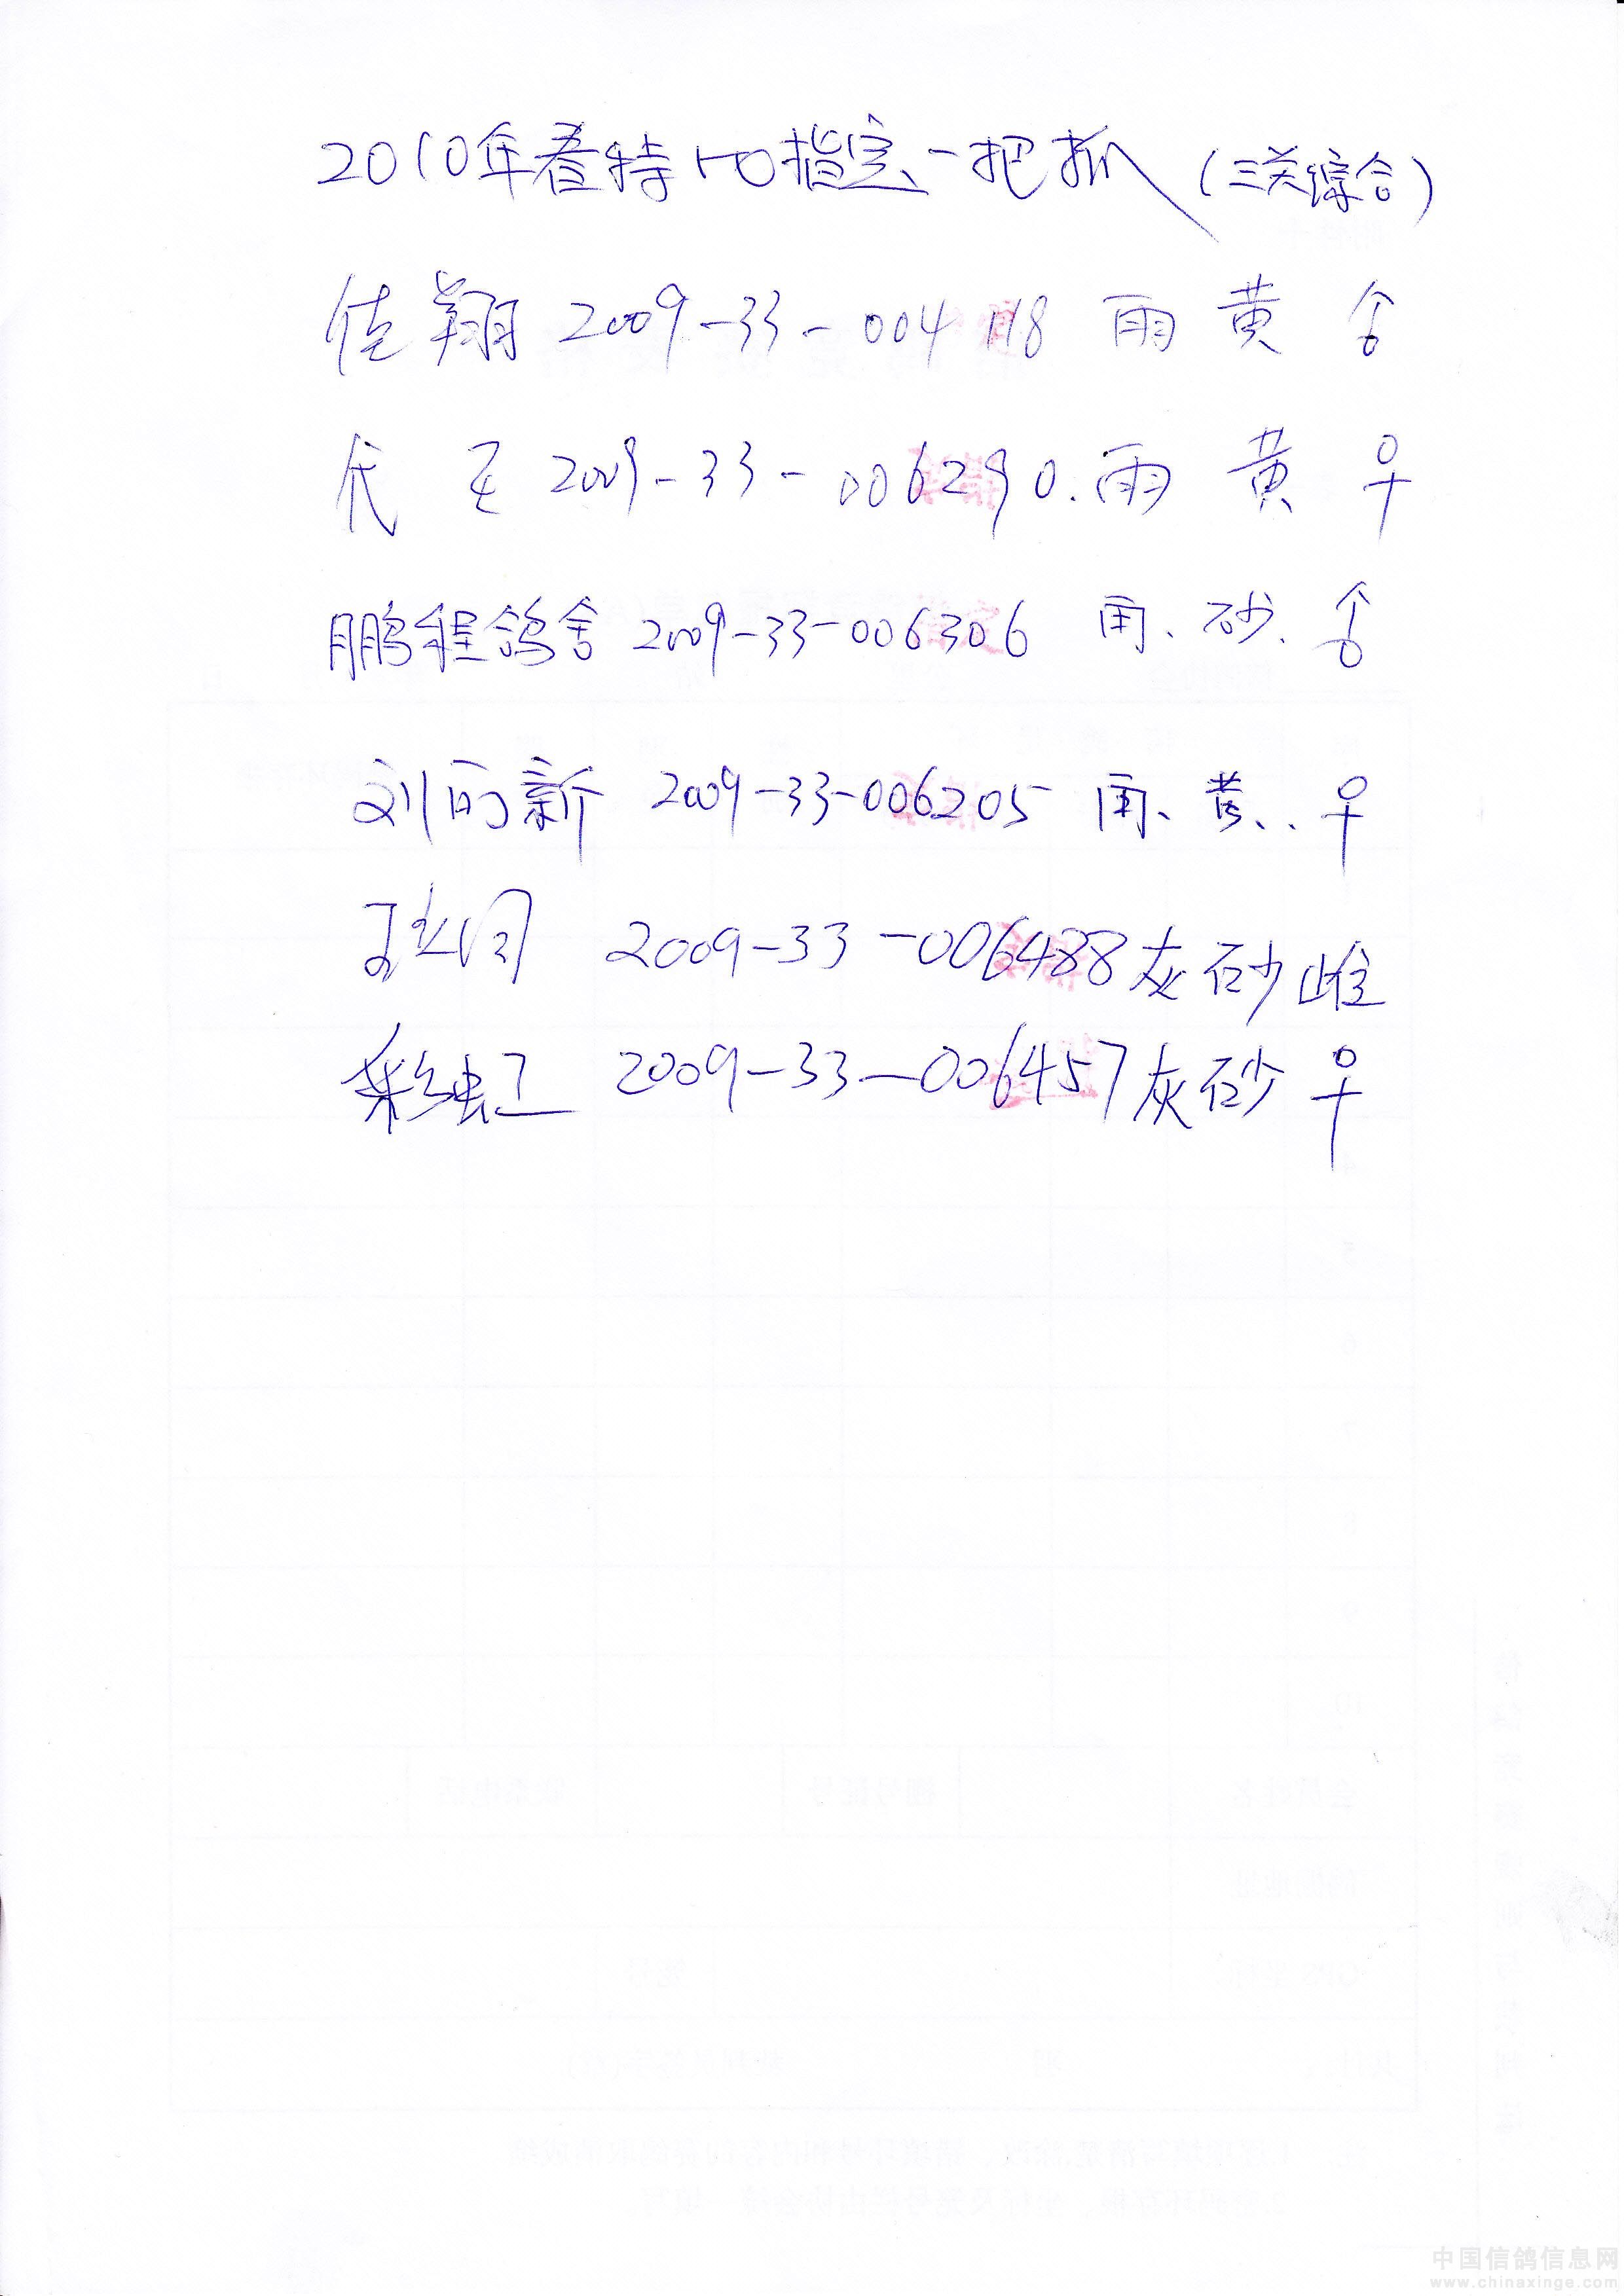 2010年春特 指定一把抓 (三关综合)
佳翔 2009-33-004118 雨黄 ♂
2009-33-006290.雨黄 ♀
鹏程鸽舍 2009-33-006306 雨、砂、♂
刘 新 2009-33-006205 雨、黄、. ♀
2009-33-006488 灰砂雌
2009-33-006457 灰砂 ♀
中国信鸽信息网
www.chinaxinge.com